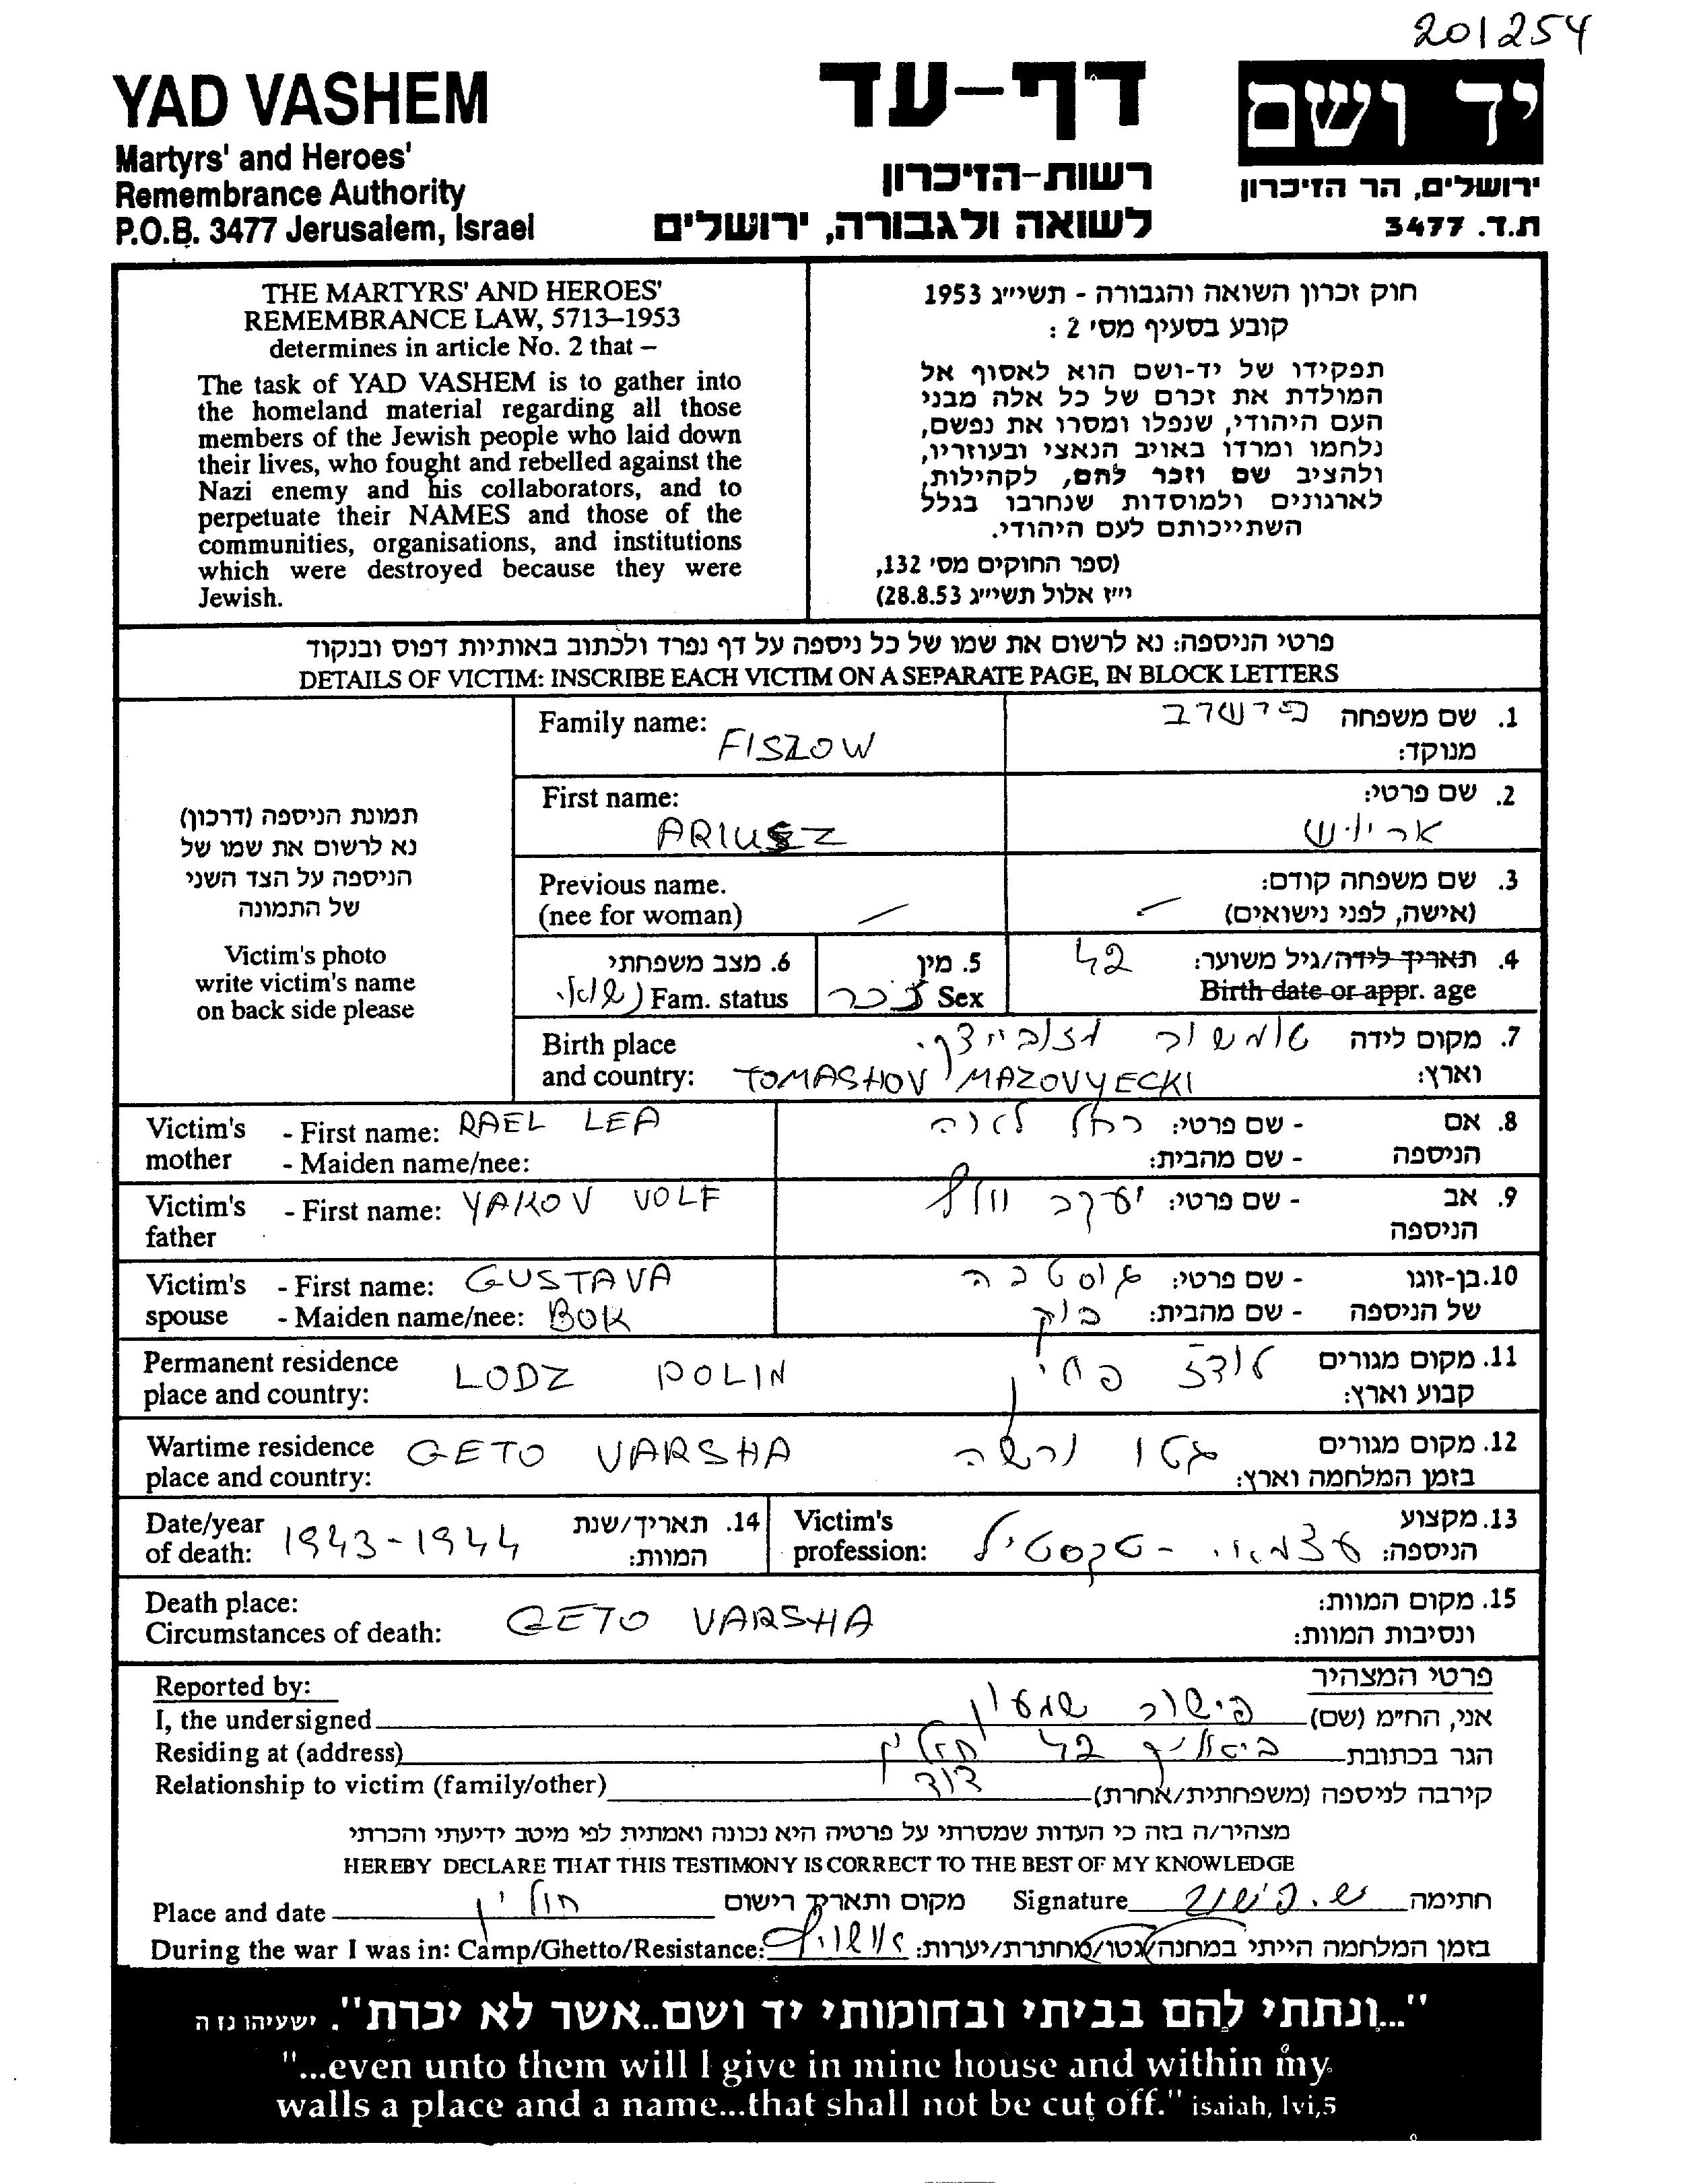 201254
YAD VASHEM
Martyrs' and Heroes'
Remembrance Authority
P.O.B. 3477 Jerusalem, Israel
דף-עד
רשות-הזיכרון
לשואה ולגבורה, ירושלים
יד ושם
ירושלים, הר הזיכרון
ת.ד. 3477
THE MARTYRS' AND HEROES'
REMEMBRANCE LAW, 5713–1953
determines in article No. 2 that –
The task of YAD VASHEM is to gather into
the homeland material regarding all those
members of the Jewish people who laid down
their lives, who fought and rebelled against the
Nazi enemy and his collaborators, and to
perpetuate their NAMES and those of the
communities, organisations, and institutions
which were destroyed because they were
Jewish.
חוק זכרון השואה והגבורה - תשי״ג 1953
קובע בסעיף מס׳ 2 :
תפקידו של יד-ושם הוא לאסוף אל
המולדת את זכרם של כל אלה מבני
העם היהודי, שנפלו ומסרו את נפשם,
נלחמו ומרדו באויב הנאצי ובעוזריו,
ולהציב שם וזכר להם, לקהילות,
לארגונים ולמוסדות שנחרבו בגלל
השתייכותם לעם היהודי.
(ספר החוקים מס׳ 132,
י״ז אלול תשי״ג 28.8.53)
פרטי הניספה: נא לרשום את שמו של כל ניספה על דף נפרד ולכתוב באותיות דפוס ובנקוד
DETAILS OF VICTIM: INSCRIBE EACH VICTIM ON A SEPARATE PAGE, IN BLOCK LETTERS
תמונת הניספה (דרכון)
נא לרשום את שמו של
הניספה על הצד השני
של התמונה
Victim's photo
write victim's name
on back side please
Family name: FISZOW
1. שם משפחה
מנוקד:
First name: ARIUSZ
2. שם פרטי: אריוש
Previous name. –
(nee for woman)
3. שם משפחה קודם: –
(אישה, לפני נישואים)
4. תאריך לידה/גיל משוער: 42
Birth date or appr. age
5. מין
Sex זכר
6. מצב משפחתי
Fam. status נשוי
Birth place
and country: TOMASHOV MAZOVYECKI
7. מקום לידה
וארץ:
Victim's mother - First name: RAEL LEA
- Maiden name/nee:
8. אם הניספה - שם פרטי: רחל לאה
- שם מהבית:
Victim's father - First name: YAKOV VOLF
9. אב הניספה - שם פרטי: יעקב וולף
Victim's spouse - First name: GUSTAVA
- Maiden name/nee: BOK
10. בן-זוגו של הניספה - שם פרטי: גוסטבה
- שם מהבית: בוק
Permanent residence
place and country: LODZ POLIN
11. מקום מגורים לודז פולין
קבוע וארץ:
Wartime residence
place and country: GETO VARSHA
12. מקום מגורים גטו ורשה
בזמן המלחמה וארץ:
Date/year
of death: 1943-1944
14. תאריך/שנת
המוות:
Victim's
profession:
13. מקצוע
הניספה: עצמאי - טקסטיל
Death place:
Circumstances of death: GETO VARSHA
15. מקום המוות:
ונסיבות המוות:
Reported by:
פרטי המצהיר
I, the undersigned
אני, הח״מ (שם) פישוב שמעון
Residing at (address)
הגר בכתובת ביאליק 42 חולון
Relationship to victim (family/other)
קירבה לניספה (משפחתית/אחרת) דוד
מצהיר/ה בזה כי העדות שמסרתי על פרטיה היא נכונה ואמתית לפי מיטב ידיעתי והכרתי
HEREBY DECLARE THAT THIS TESTIMONY IS CORRECT TO THE BEST OF MY KNOWLEDGE
Place and date חולון מקום ותאריך רישום
Signature ש. פישוב חתימה
During the war I was in: Camp/Ghetto/Resistance:
בזמן המלחמה הייתי במחנה/גטו/מחתרת/יערות:
"...ונתתי להם בביתי ובחומותי יד ושם..אשר לא יכרת". ישעיהו נו ה
"...even unto them will I give in mine house and within my
walls a place and a name...that shall not be cut off." isaiah, lvi,5